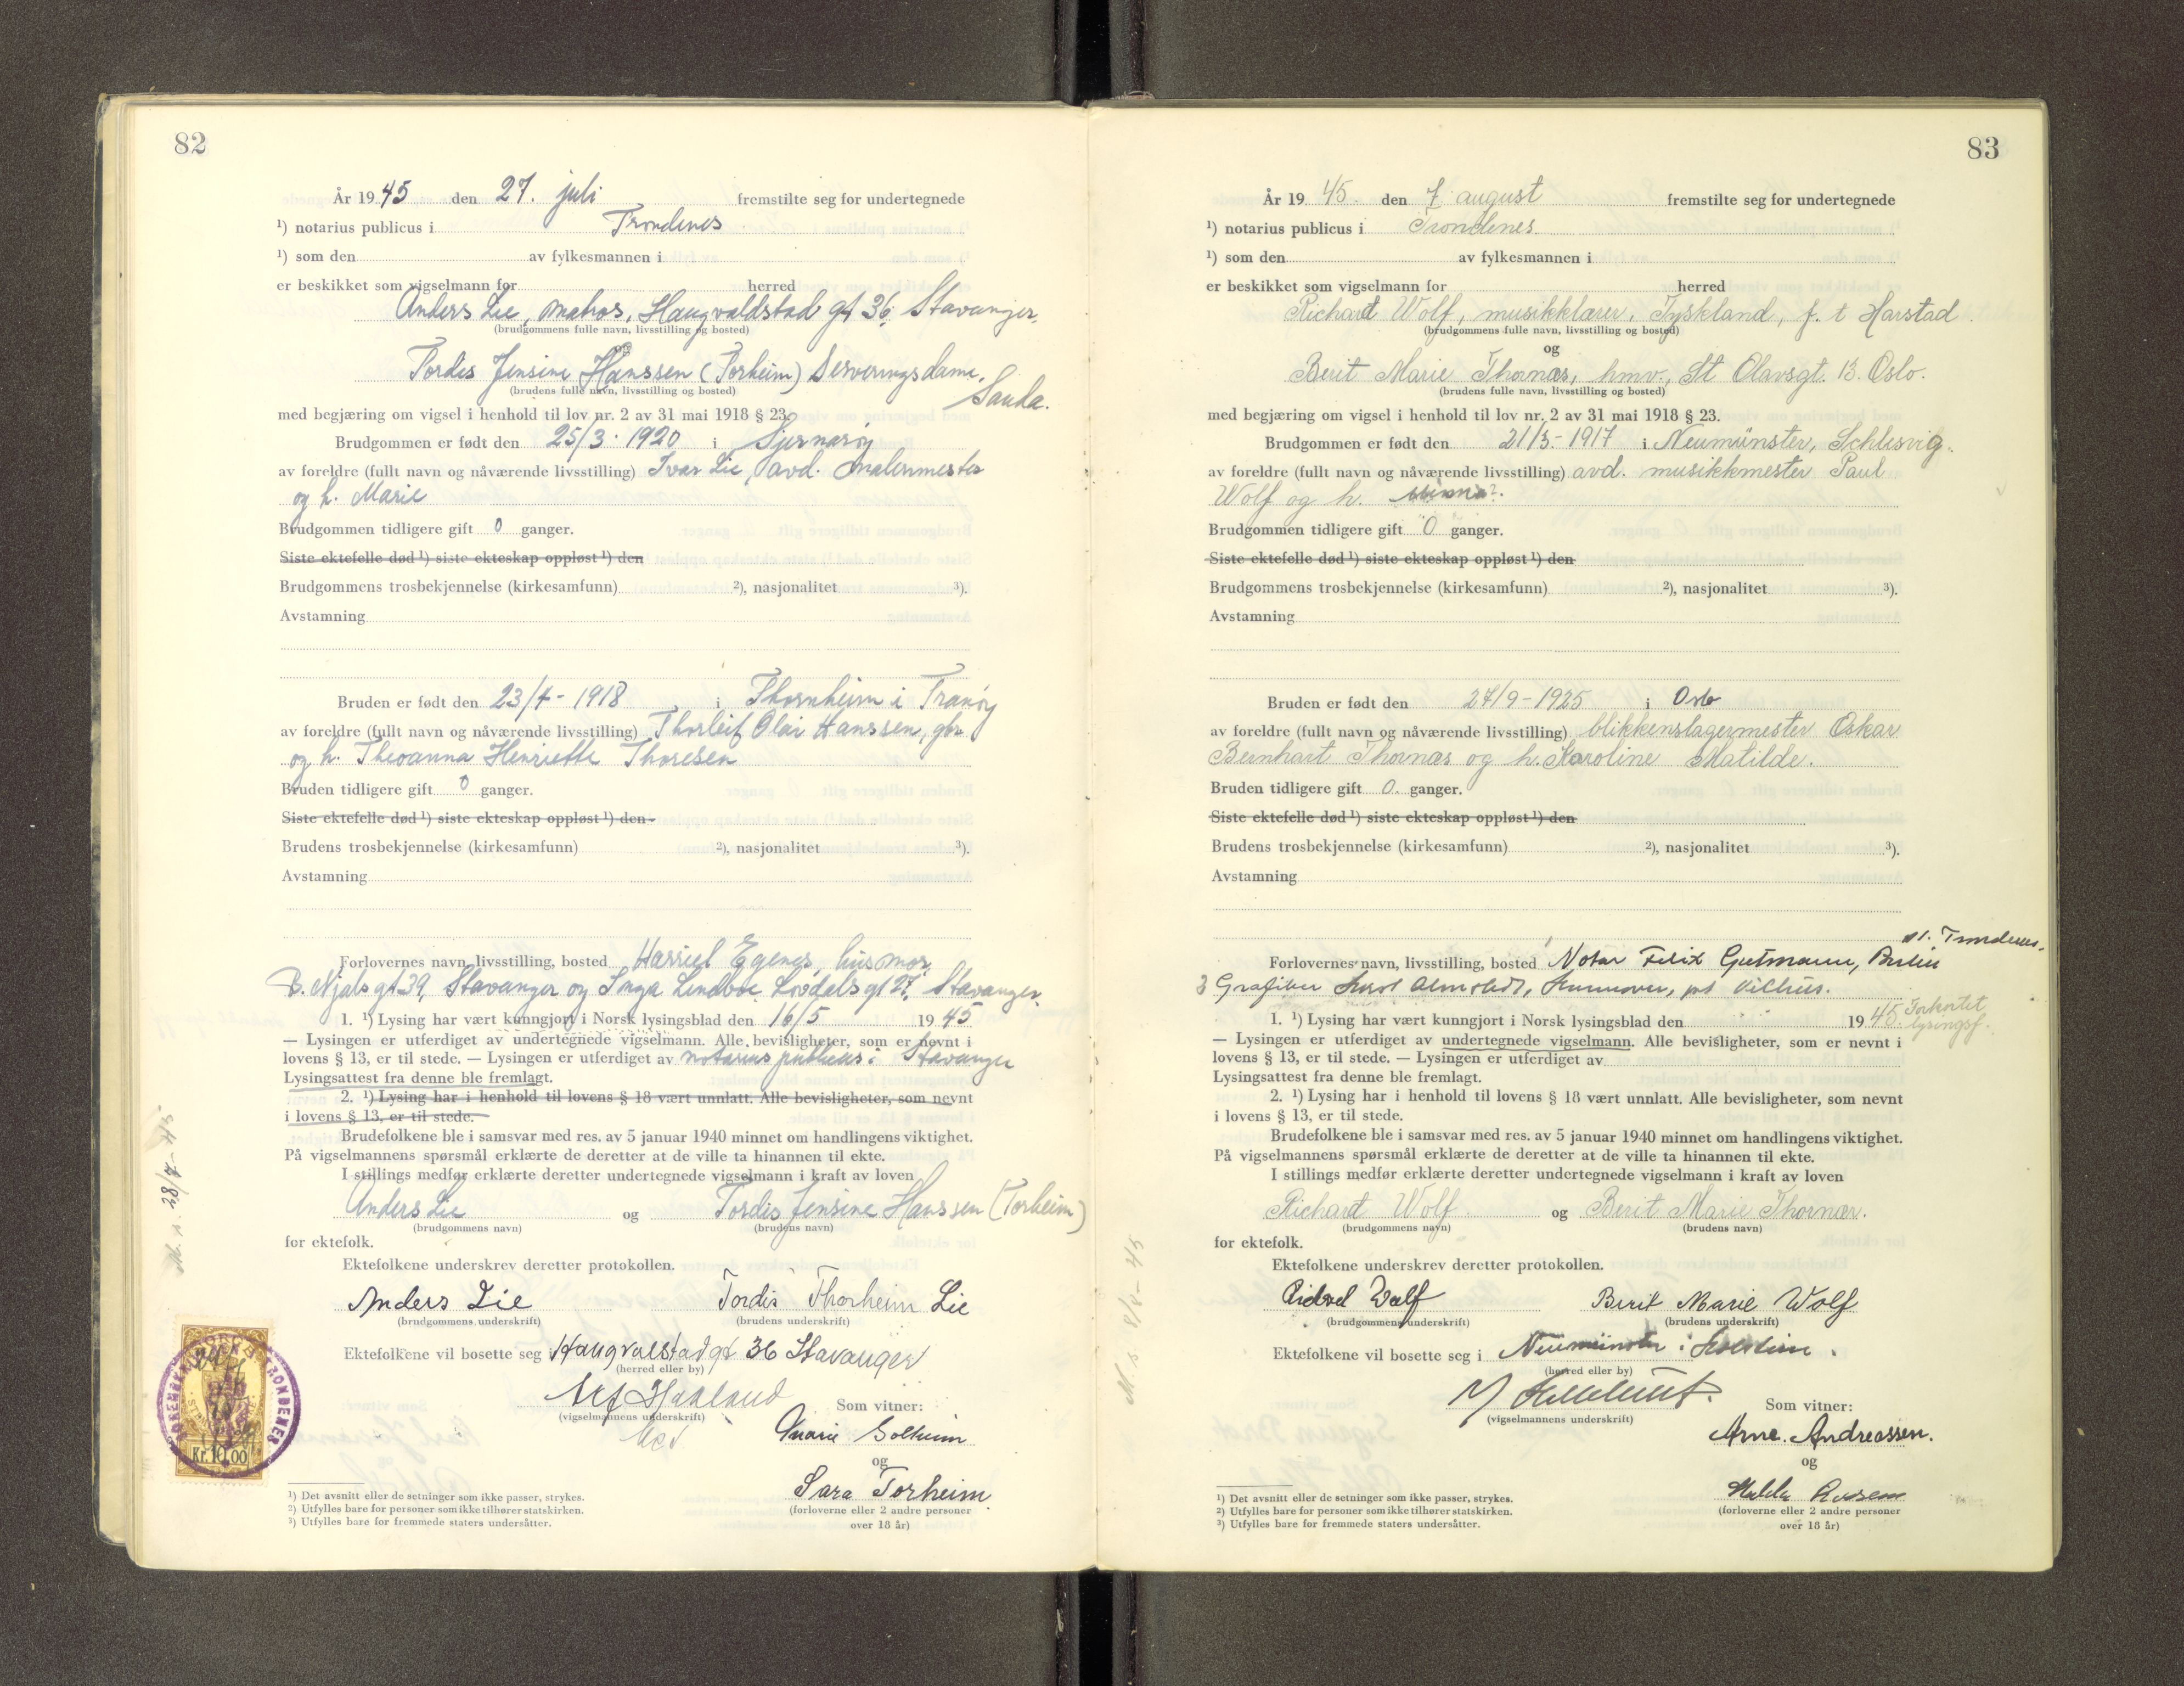 82
År 1945 den 27. juli fremstilte seg for undertegnede
¹) notarius publicus i Trondenes
¹) som den av fylkesmannen i
er beskikket som vigselmann for herred
Anders Lie, matros, Haugvaldstad gt 36, Stavanger.
(brudgommens fulle navn, livsstilling og bosted)
og
Tordis Jensine Hanssen (Torheim) Serveringsdame, Sauda.
(brudens fulle navn, livsstilling og bosted)
med begjæring om vigsel i henhold til lov nr. 2 av 31 mai 1918 § 23.
Brudgommen er født den 25/3 · 1920 i Sjernarøy
av foreldre (fullt navn og nåværende livsstilling) Ivar Lie, avd. malermester
og h. Marie
Brudgommen tidligere gift 0 ganger.
Siste ektefelle død ¹) siste ekteskap oppløst ¹) den
Brudgommens trosbekjennelse (kirkesamfunn) ²), nasjonalitet ³).
Avstamning
Bruden er født den 23/4 - 1918 i Thornheim i Tranøy
av foreldre (fullt navn og nåværende livsstilling) Thorleif Olai Hanssen, gbr
og h. Theoanna Henriette Thoresen
Bruden tidligere gift 0 ganger.
Siste ektefelle død ¹) siste ekteskap oppløst ¹) den
Brudens trosbekjennelse (kirkesamfunn) ²), nasjonalitet ³).
Avstamning
Forlovernes navn, livsstilling, bosted Harriet Egenes, husmor,
B. Njåls gt 39, Stavanger og Inga Lindboe Lovdalsgt 27, Stavanger.
1. ¹) Lysing har vært kunngjort i Norsk lysingsblad den 16/5 1945
— Lysingen er utferdiget av undertegnede vigselmann. Alle bevisligheter, som er nevnt i
lovens § 13, er til stede. — Lysingen er utferdiget av notarius publicus i Stavanger
Lysingsattest fra denne ble fremlagt.
2. ¹) Lysing har i henhold til lovens § 18 vært unnlatt. Alle bevisligheter, som nevnt
i lovens § 13, er til stede.
Brudefolkene ble i samsvar med res. av 5 januar 1940 minnet om handlingens viktighet.
På vigselmannens spørsmål erklærte de deretter at de ville ta hinannen til ekte.
I stillings medfør erklærte deretter undertegnede vigselmann i kraft av loven
Anders Lie og Tordis Jensine Hanssen (Torheim)
(brudgommens navn) (brudens navn)
for ektefolk.
Ektefolkene underskrev deretter protokollen.
Anders Lie Tordis Thorheim Lie
(brudgommens underskrift) (brudens underskrift)
Ektefolkene vil bosette seg i Haugvalstadgt 36 Stavanger
(herred eller by)
(vigselmannens underskrift)
Som vitner:
Marie Solheim
og
Sara Torheim
(forloverne eller 2 andre personer
over 18 år)
¹) Det avsnitt eller de setninger som ikke passer, strykes.
²) Utfylles bare for personer som ikke tilhører statskirken.
³) Utfylles bare for fremmede staters undersåtter.
28/7-45
Kr. 10.00
TRONDENES
83
År 1945. den 7 august fremstilte seg for undertegnede
¹) notarius publicus i Trondenes
¹) som den av fylkesmannen i
er beskikket som vigselmann for herred
Richard Wolf, musikklærer, Tyskland, f. t Harstad
(brudgommens fulle navn, livsstilling og bosted)
og
Berit Marie Thornæs, hmv., St Olavsgt. 13. Oslo.
(brudens fulle navn, livsstilling og bosted)
med begjæring om vigsel i henhold til lov nr. 2 av 31 mai 1918 § 23.
Brudgommen er født den 21/3 - 1917 i Neumünster, Schlesvig.
av foreldre (fullt navn og nåværende livsstilling) avd. musikkmester Paul
Wolf og h. Minna?.
Brudgommen tidligere gift 0 ganger.
Siste ektefelle død ¹) siste ekteskap oppløst ¹) den
Brudgommens trosbekjennelse (kirkesamfunn) ²), nasjonalitet ³).
Avstamning
Bruden er født den 27/9 - 1925 i Oslo
av foreldre (fullt navn og nåværende livsstilling) blikkenslagermester Oskar
Bernhart Thornæs og h. Karoline Matilde.
Bruden tidligere gift 0. ganger.
Siste ektefelle død ¹) siste ekteskap oppløst ¹) den
Brudens trosbekjennelse (kirkesamfunn) ²), nasjonalitet ³).
Avstamning
Forlovernes navn, livsstilling, bosted Notar Felix Gutmann, Berlin
Trondenes.
Grafiker Almstedt, Hannover,
1. ¹) Lysing har vært kunngjort i Norsk lysingsblad den 1945. Forkortet lysingsf.
— Lysingen er utferdiget av undertegnede vigselmann. Alle bevisligheter, som er nevnt i
lovens § 13, er til stede. — Lysingen er utferdiget av
Lysingsattest fra denne ble fremlagt.
2. ¹) Lysing har i henhold til lovens § 18 vært unnlatt. Alle bevisligheter, som nevnt
i lovens § 13, er til stede.
Brudefolkene ble i samsvar med res. av 5 januar 1940 minnet om handlingens viktighet.
På vigselmannens spørsmål erklærte de deretter at de ville ta hinannen til ekte.
I stillings medfør erklærte deretter undertegnede vigselmann i kraft av loven
Richard Wolf og Berit Marie Thornær.
(brudgommens navn) (brudens navn)
for ektefolk.
Ektefolkene underskrev deretter protokollen.
Richard Wolf Berit Marie Wolf
(brudgommens underskrift) (brudens underskrift)
Ektefolkene vil bosette seg i Neumünster i Holstein.
(herred eller by)
(vigselmannens underskrift)
Som vitner:
Arne. Andreassen.
og
(forloverne eller 2 andre personer
over 18 år)
¹) Det avsnitt eller de setninger som ikke passer, strykes.
²) Utfylles bare for personer som ikke tilhører statskirken.
³) Utfylles bare for fremmede staters undersåtter.
8/8-45